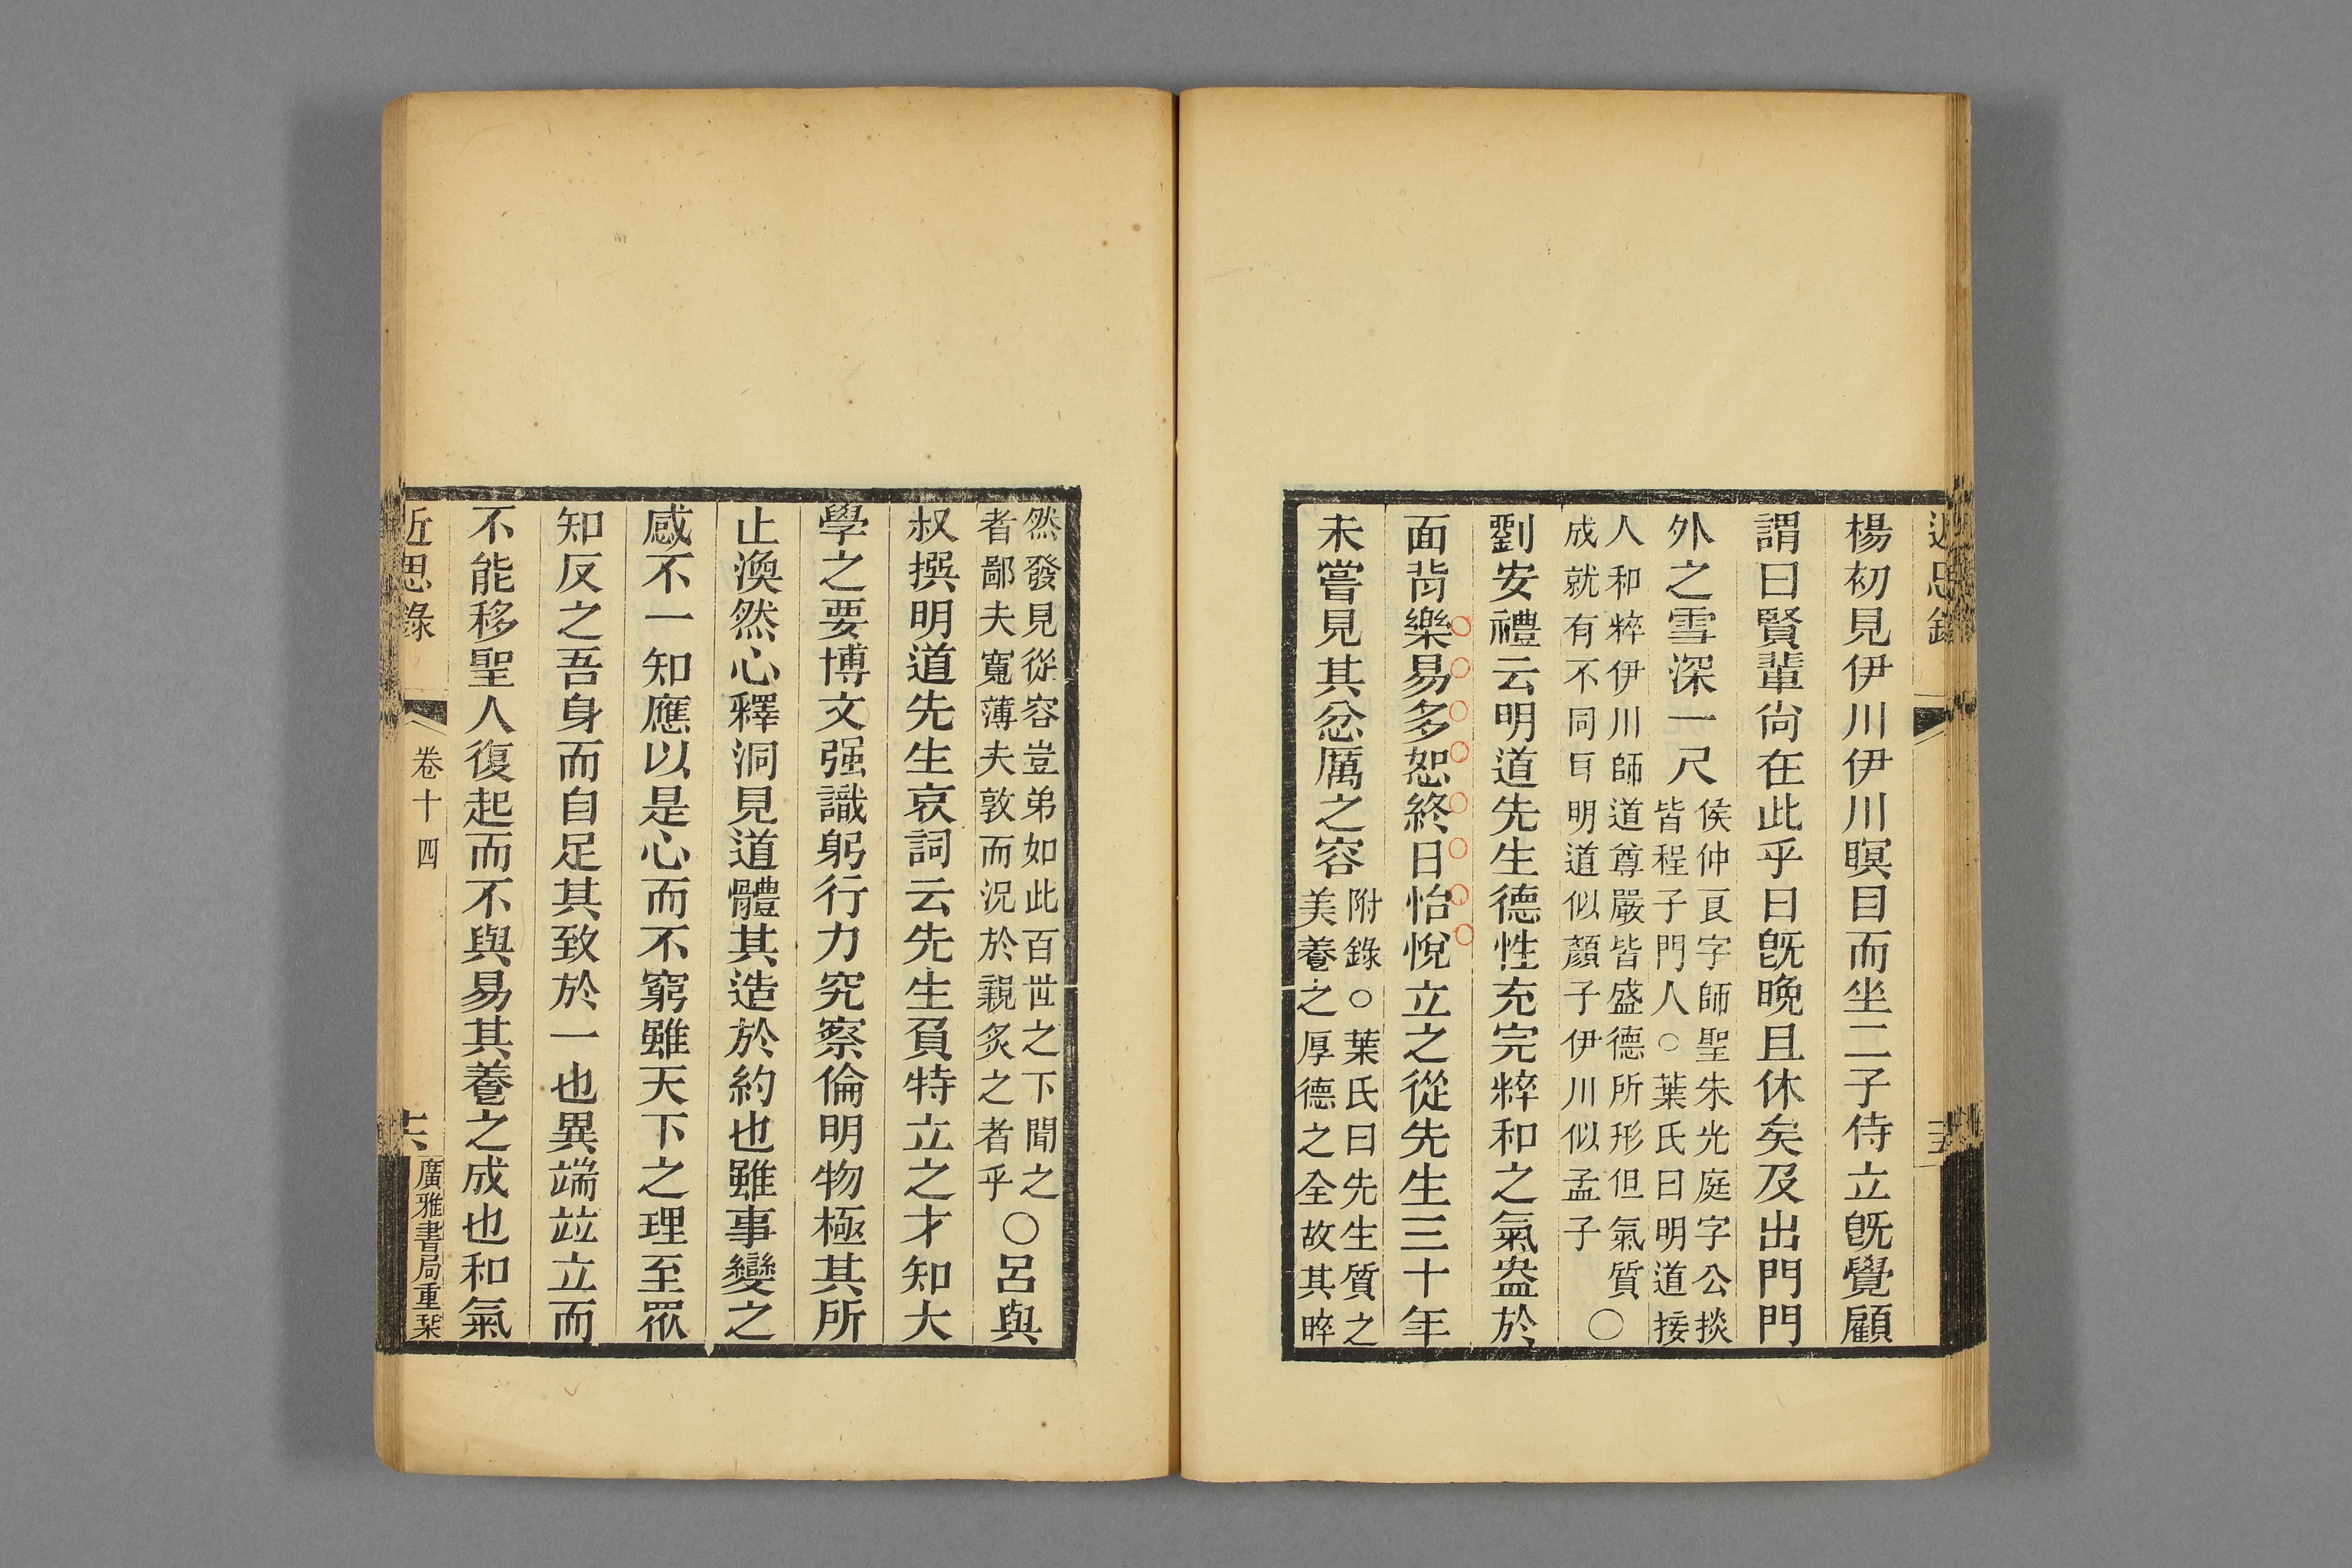 近思錄
楊初見伊川伊川瞑目而坐二子侍立旣覺顧
謂曰賢輩尙在此乎曰旣晚且休矣及出門門
外之雪深一尺
侯仲良字師聖朱光庭字公掞
皆程子門人○葉氏曰明道接
人和粹伊川師道尊嚴皆盛德所形但氣質
成就有不同耳明道似顏子伊川似孟子
○
劉安禮云明道先生德性充完粹和之氣盎於
面背樂易多恕終日怡悅立之從先生三十年
未嘗見其忿厲之容
附錄○葉氏曰先生質之
美養之厚德之全故其晬
然發見從容豈弟如此百世之下聞之
者鄙夫寬薄夫敦而況於親炙之者乎
○呂與
叔撰明道先生哀詞云先生負特立之才知大
學之要博文强識躬行力究察倫明物極其所
止渙然心釋洞見道體其造於約也雖事變之
感不一知應以是心而不窮雖天下之理至眾
知反之吾身而自足其致於一也異端竝立而
不能移聖人復起而不與易其養之成也和氣
近思錄
卷十四
十六
廣雅書局重栞